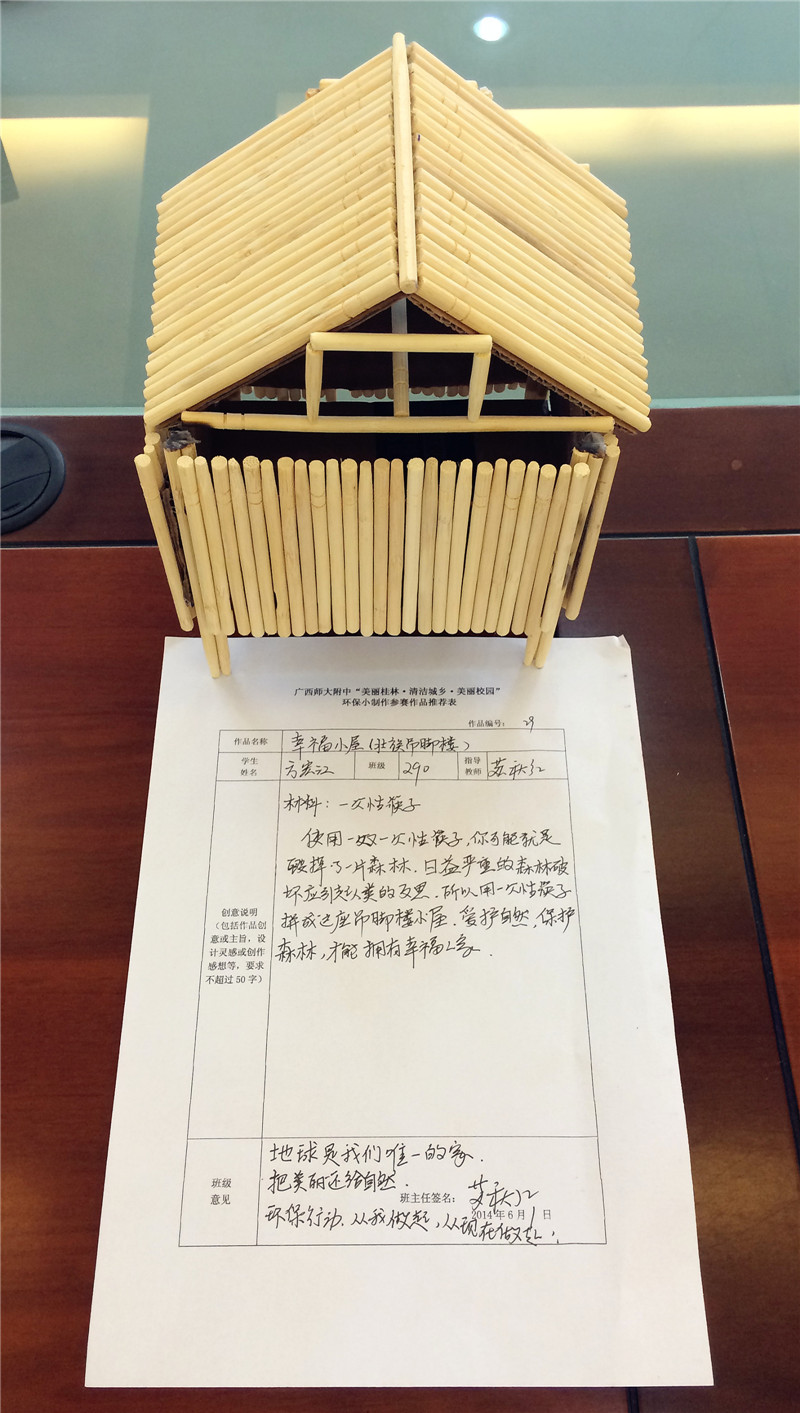 广西师大附中“美丽桂林·清洁城乡·美丽校园”
环保小制作参赛作品推荐表
作品编号： 29
作品名称 幸福小屋(壮族吊脚楼)
学生姓名 方宏江 班级 290 指导教师 苏秋红
材料：一次性筷子
使用一双一次性筷子,你可能就是
毁掉了一片森林.日益严重的森林破
坏应引起人类的反思.所以用一次性筷子
拼成这座吊脚楼小屋.爱护自然,保护
森林,才能拥有幸福之家.
创意说明
（包括作品创
意或主旨，设
计灵感或创作
感想等，要求
不超过 50 字）
班级
意见
地球是我们唯一的家.
把美丽还给自然.
班主任签名： 苏秋红
环保行动.从我做起,从现在做起.
2014 年 6 月 1 日